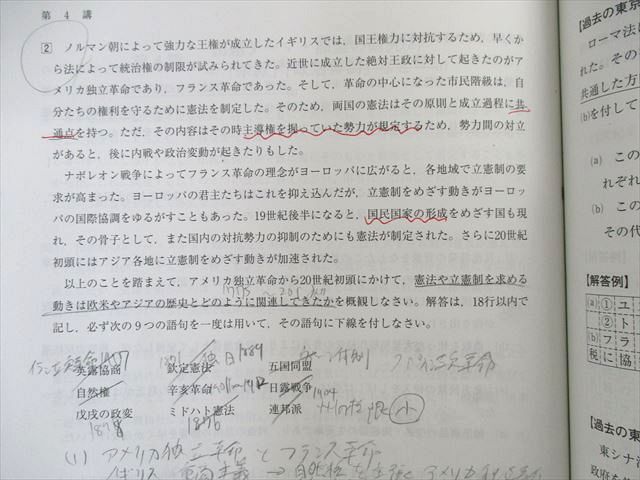 第 4 講
2 ノルマン朝によって強力な王権が成立したイギリスでは，国王権力に対抗するため，早くか
ら法によって統治権の制限が試みられてきた。近世に成立した絶対王政に対して起きたのがア
メリカ独立革命であり，フランス革命であった。そして，革命の中心になった市民階級は，自
分たちの権利を守るために憲法を制定した。そのため，両国の憲法はその原則と成立過程に共
通点を持つ。ただ，その内容はその時主導権を握っていた勢力が規定するため，勢力間の対立
があると，後に内戦や政治変動が起きたりもした。
ナポレオン戦争によってフランス革命の理念がヨーロッパに広がると，各地域で立憲制の要
求が高まった。ヨーロッパの君主たちはこれを抑え込んだが，立憲制をめざす動きがヨーロッ
パの国際協調をゆるがすこともあった。19世紀後半になると，国民国家の形成をめざす国も現
れ，その骨子として，また国内の対抗勢力の抑制のためにも憲法が制定された。さらに20世紀
初頭にはアジア各地に立憲制をめざす動きが加速された。
以上のことを踏まえて，アメリカ独立革命から20世紀初頭にかけて，憲法や立憲制を求める
1775
動きは欧米やアジアの歴史とどのように関連してきたかを概観しなさい。解答は，18行以内で
記し，必ず次の9つの語句を一度は用いて，その語句に下線を付しなさい。
独 日1889
英露協商 欽定憲法 五国同盟
自然権 辛亥革命 日露戦争 1904
戊戌の政変 ミドハト憲法 連邦派
1876
(1) アメリカ独立革命とフランス革命
イギリス 重商主義 →自然権を主張
【過去の東京
ローマ法に
共通した方
(b)を付して
(a) この
れぞれ
(b) この
その代
【解答例】
(a) ① ユ
② ト
(b) フラ
税に協
【過去の東
東シナ